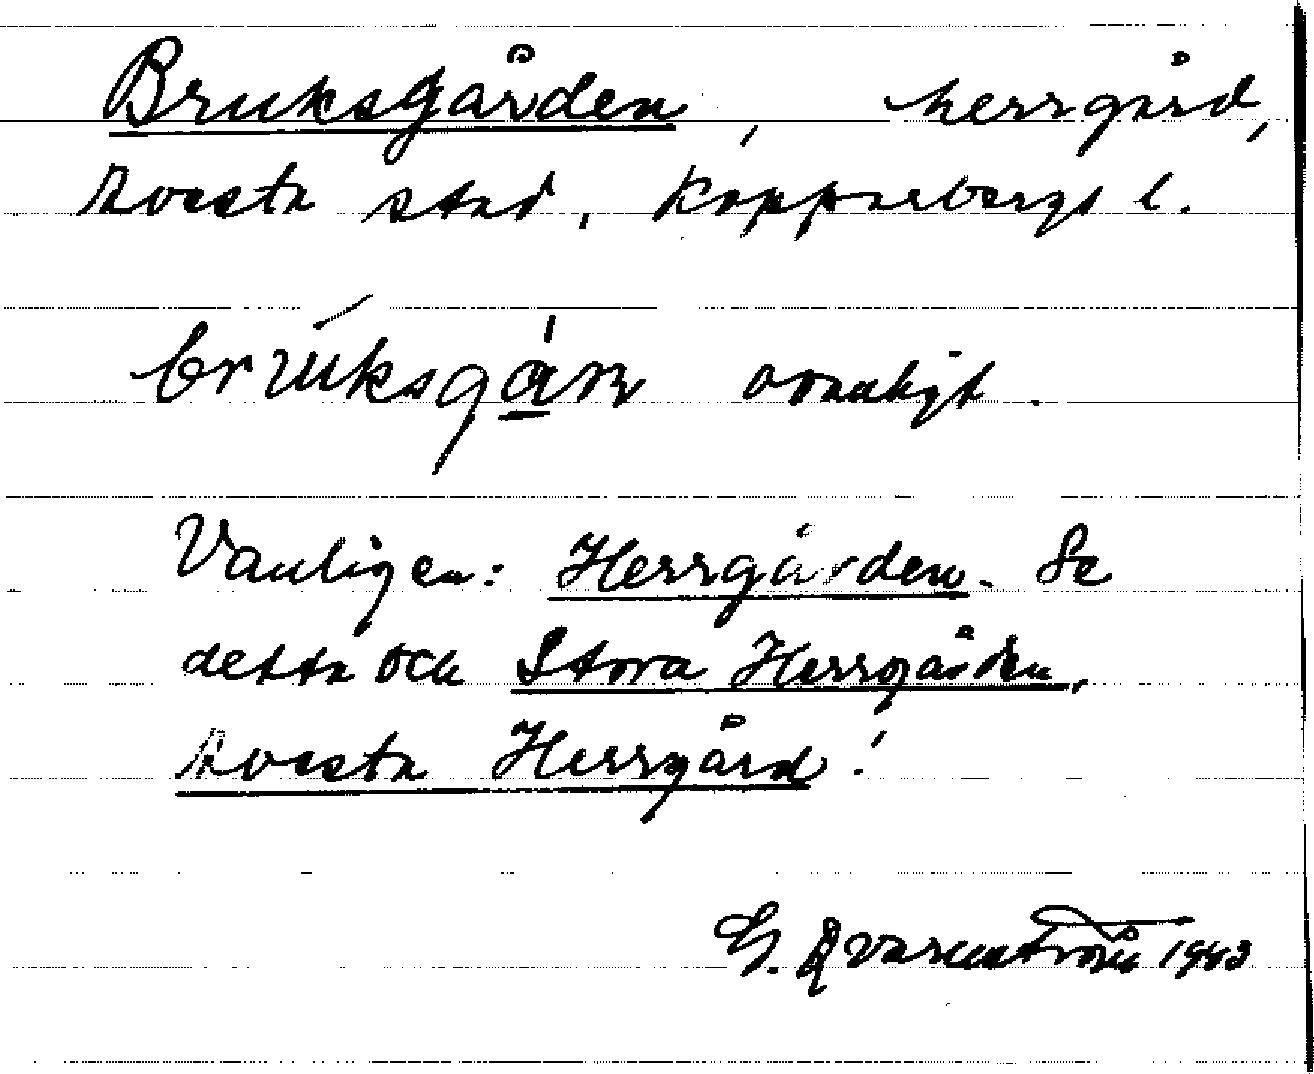 Bruksgården, herrgård,
Avesta stad, Kopparbergs l.
ovanligt.
Vanligen: Herrgården. Se
detta och Stora Herrgården,
Avesta Herrgård!
G. Qvarnström